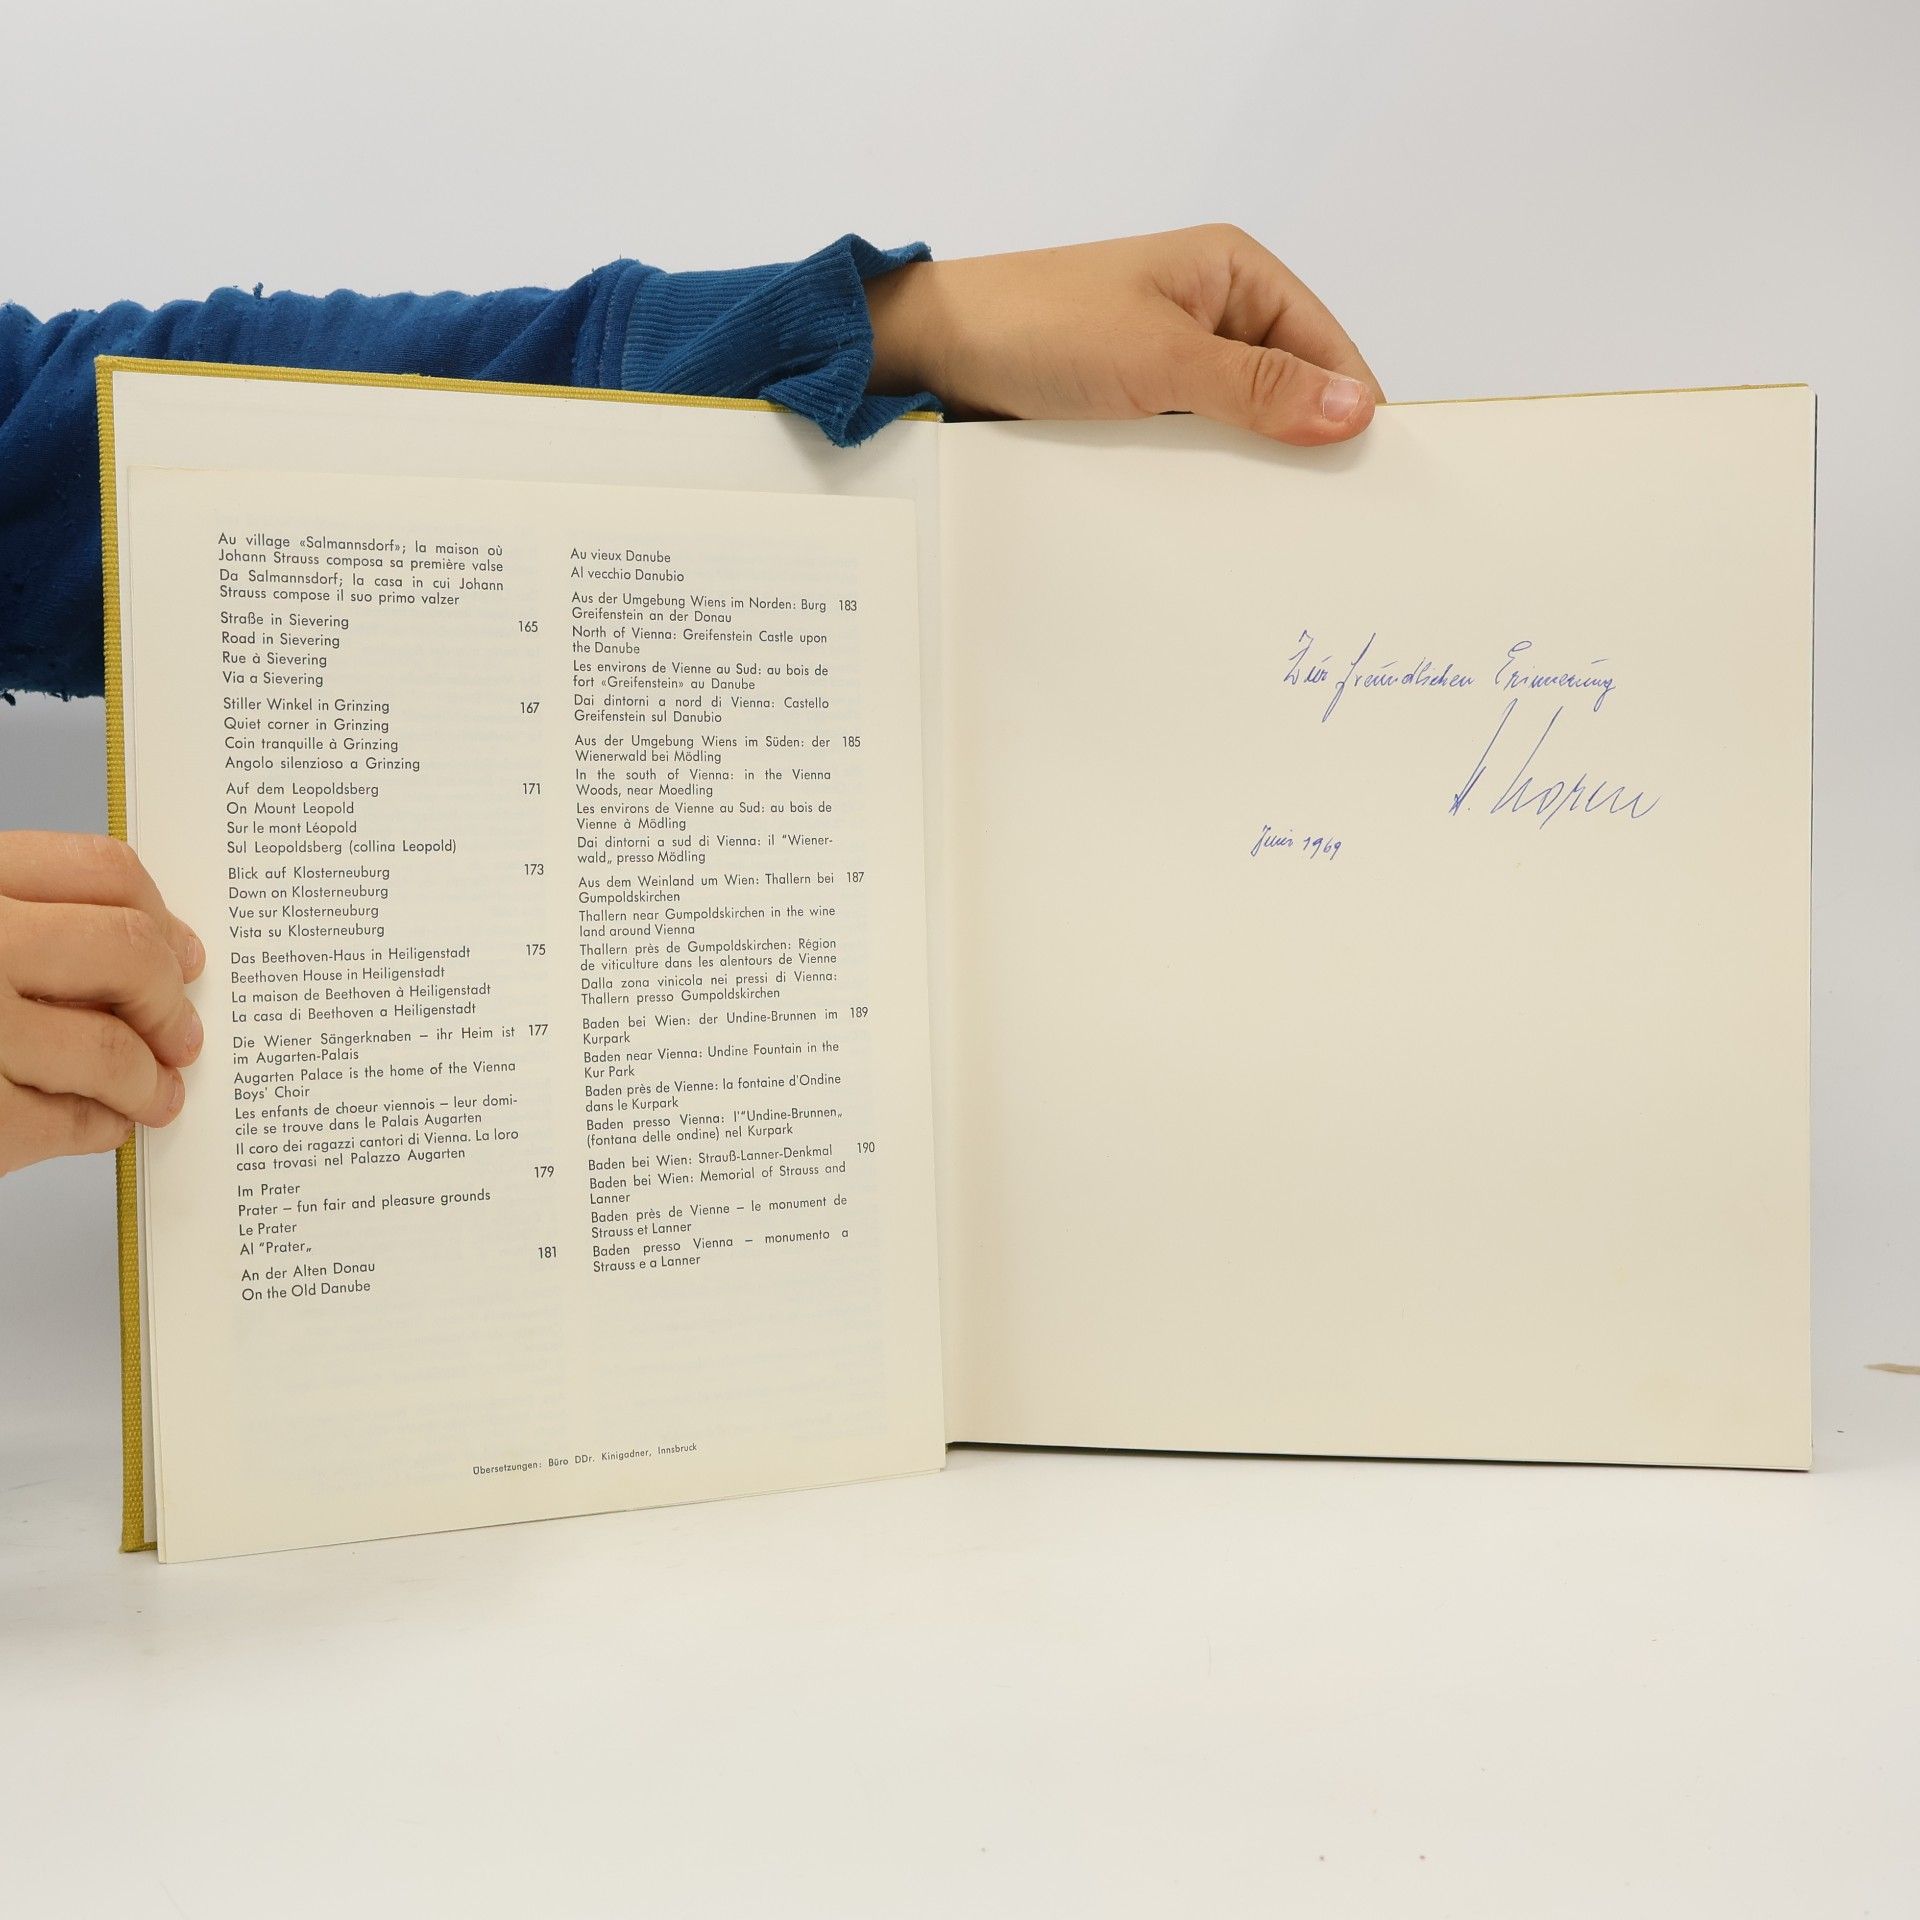 Au village «Salmannsdorf»; la maison où
Johann Strauss composa sa première valse
Da Salmannsdorf; la casa in cui Johann
Strauss compose il suo primo valzer
Straße in Sievering 165
Road in Sievering
Rue à Sievering
Via a Sievering
Stiller Winkel in Grinzing 167
Quiet corner in Grinzing
Coin tranquille à Grinzing
Angolo silenzioso a Grinzing
Auf dem Leopoldsberg 171
On Mount Leopold
Sur le mont Léopold
Sul Leopoldsberg (collina Leopold)
Blick auf Klosterneuburg 173
Down on Klosterneuburg
Vue sur Klosterneuburg
Vista su Klosterneuburg
Das Beethoven-Haus in Heiligenstadt 175
Beethoven House in Heiligenstadt
La maison de Beethoven à Heiligenstadt
La casa di Beethoven a Heiligenstadt
Die Wiener Sängerknaben – ihr Heim ist 177
im Augarten-Palais
Augarten Palace is the home of the Vienna
Boys' Choir
Les enfants de choeur viennois – leur domi-
cile se trouve dans le Palais Augarten
Il coro dei ragazzi cantori di Vienna. La loro
casa trovasi nel Palazzo Augarten
Im Prater 179
Prater – fun fair and pleasure grounds
Le Prater
Al "Prater„
An der Alten Donau 181
On the Old Danube
Au vieux Danube
Al vecchio Danubio
Aus der Umgebung Wiens im Norden: Burg 183
Greifenstein an der Donau
North of Vienna: Greifenstein Castle upon
the Danube
Les environs de Vienne au Sud: au bois de
fort «Greifenstein» au Danube
Dai dintorni a nord di Vienna: Castello
Greifenstein sul Danubio
Aus der Umgebung Wiens im Süden: der 185
Wienerwald bei Mödling
In the south of Vienna: in the Vienna
Woods, near Moedling
Les environs de Vienne au Sud: au bois de
Vienne à Mödling
Dai dintorni a sud di Vienna: il "Wiener-
wald„ presso Mödling
Aus dem Weinland um Wien: Thallern bei 187
Gumpoldskirchen
Thallern near Gumpoldskirchen in the wine
land around Vienna
Thallern près de Gumpoldskirchen: Région
de viticulture dans les alentours de Vienne
Dalla zona vinicola nei pressi di Vienna:
Thallern presso Gumpoldskirchen
Baden bei Wien: der Undine-Brunnen im 189
Kurpark
Baden near Vienna: Undine Fountain in the
Kur Park
Baden près de Vienne: la fontaine d'Ondine
dans le Kurpark
Baden presso Vienna: l'"Undine-Brunnen„
(fontana delle ondine) nel Kurpark
Baden bei Wien: Strauß-Lanner-Denkmal 190
Baden bei Wien: Memorial of Strauss and
Lanner
Baden près de Vienne – le monument de
Strauss et Lanner
Baden presso Vienna – monumento a
Strauss e a Lanner
Übersetzungen: Büro DDr. Kinigadner, Innsbruck
Zur freundlichen Erinnerung
Juni 1969